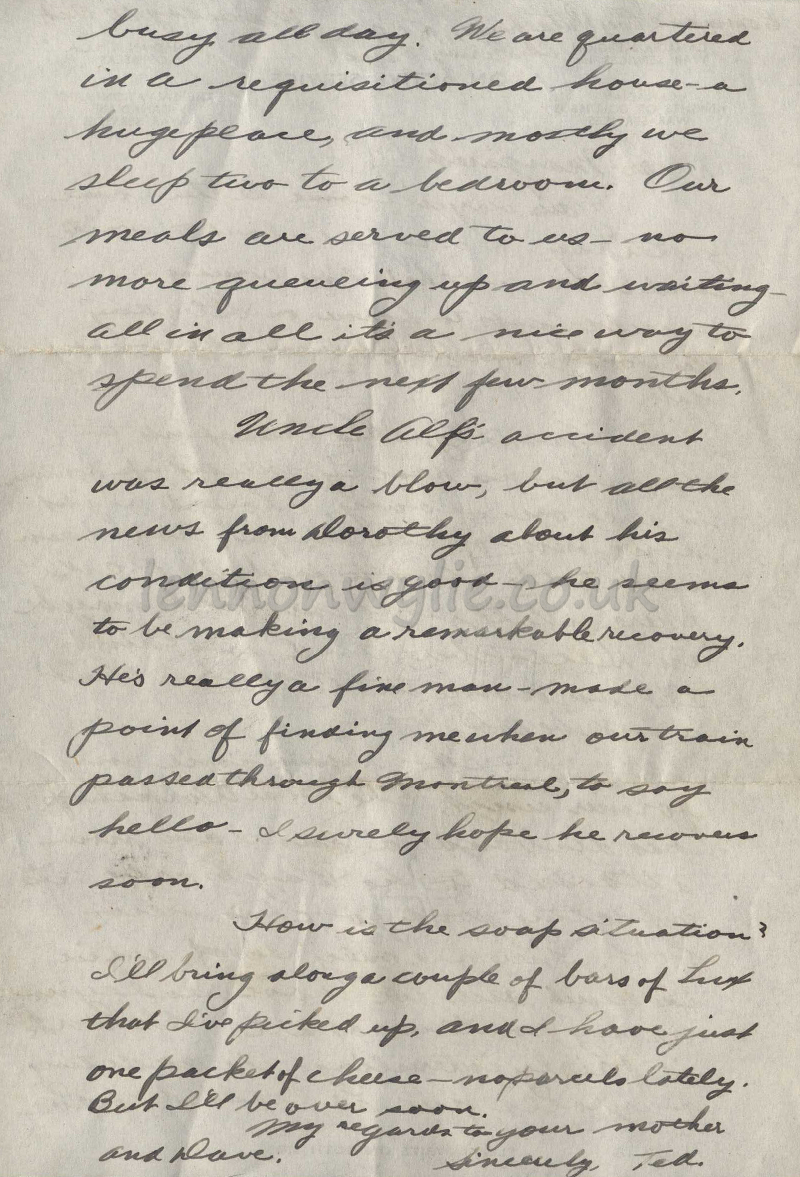 busy all day. We are quartered
in a requisitioned house - a
huge place, and mostly we
sleep two to a bedroom. Our
meals are served to us - no
more queueing up and waiting -
all in all it's a nice way to
spend the next few months.
Uncle Alf's accident
was really a blow, but all the
news from Dorothy about his
condition is good - he seems
lennonwylie.co.uk
to be making a remarkable recovery.
He's really a fine man - made a
point of finding me when our train
passed through Montreal, to say
hello - I surely hope he recovers
soon.
How is the soap situation?
I'll bring along a couple of bars of Lux
that I've picked up, and I have just
one packet of cheese - no parcels lately.
But I'll be over soon.
My regards to your mother
and Dave.
Sincerely, Ted.